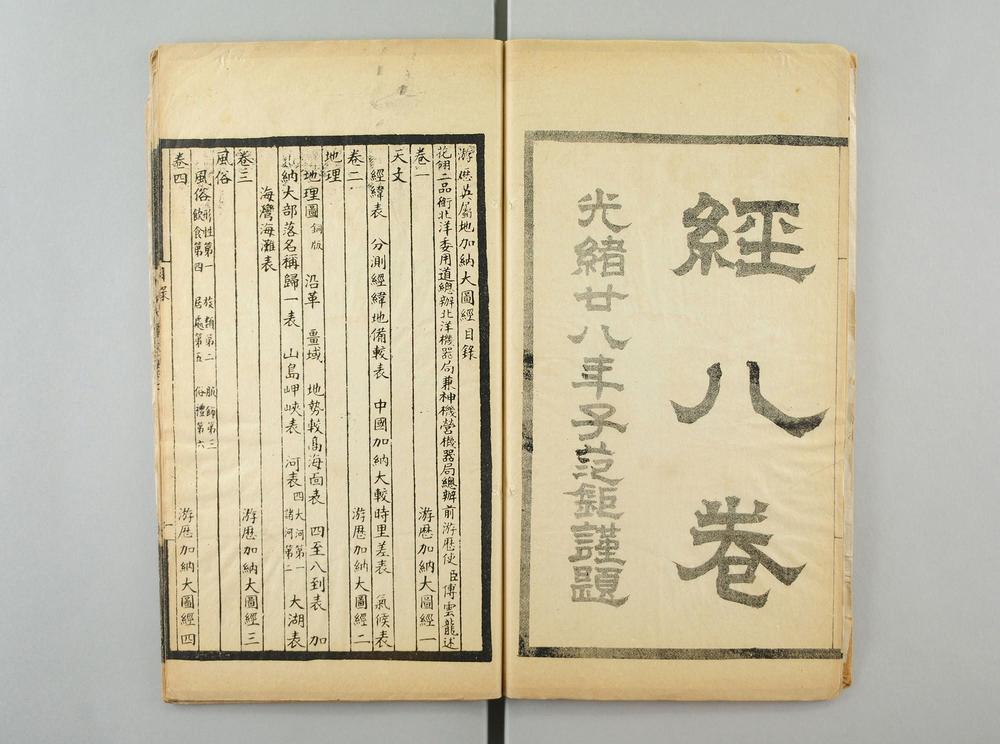 經八卷
光緒廿八年子范鉅謹題
游歷英屬地加納大圖經目錄
花翎二品銜北洋委用道總辦北洋機器局兼神機營機器局總辦前游歷使臣傅雲龍述
卷一 游歷加納大圖經一
天文
經緯表 分測經緯地備較表 中國加納大較時里差表 氣候表
卷二 游歷加納大圖經二
地理
地理圖銅版 沿革 畺域 地勢較高海面表 四至八到表 加
納大部落名稱歸一表 山島岬峽表 河表四大河第一諸河第二 大湖表
海灣海灘表
卷三 游歷加納大圖經三
風俗
風俗形性第一 族類第二 服飾第三 飲食第四 居處第五 俗禮第六
卷四 游歷加納大圖經四
目錄
一